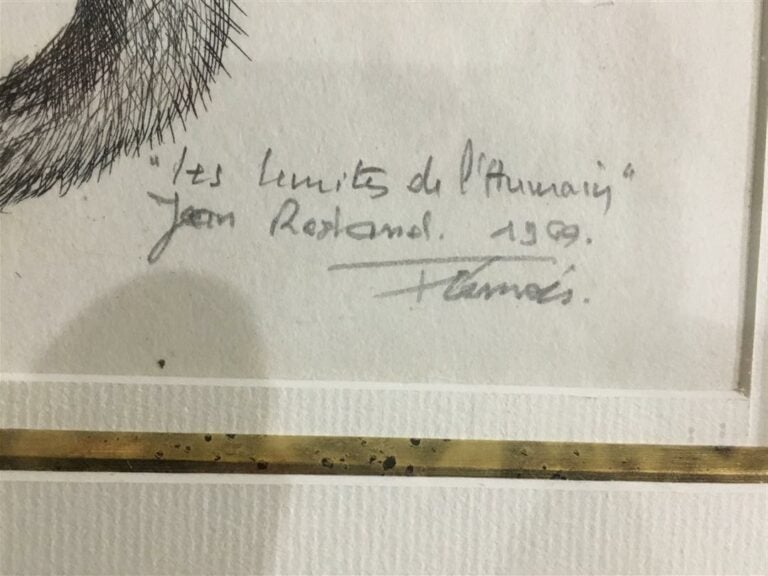 "les limites de l'Humain"
Jean Rostand. 1969.